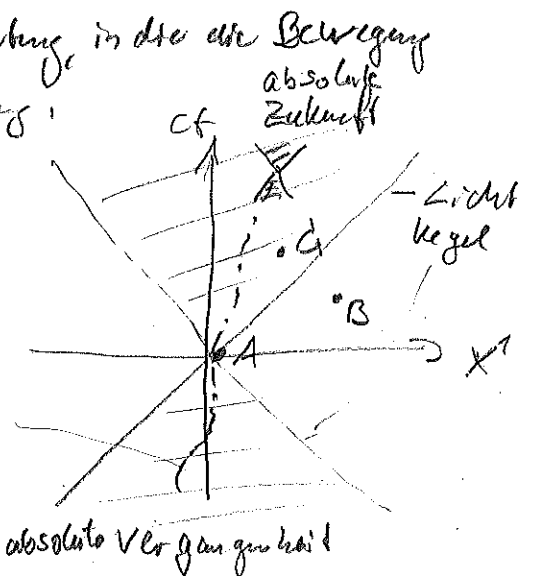 in die die Bewegung
absolute
Zukunft
ct
Licht
kegel
G
B
A
X¹
absolute Vergangenheit